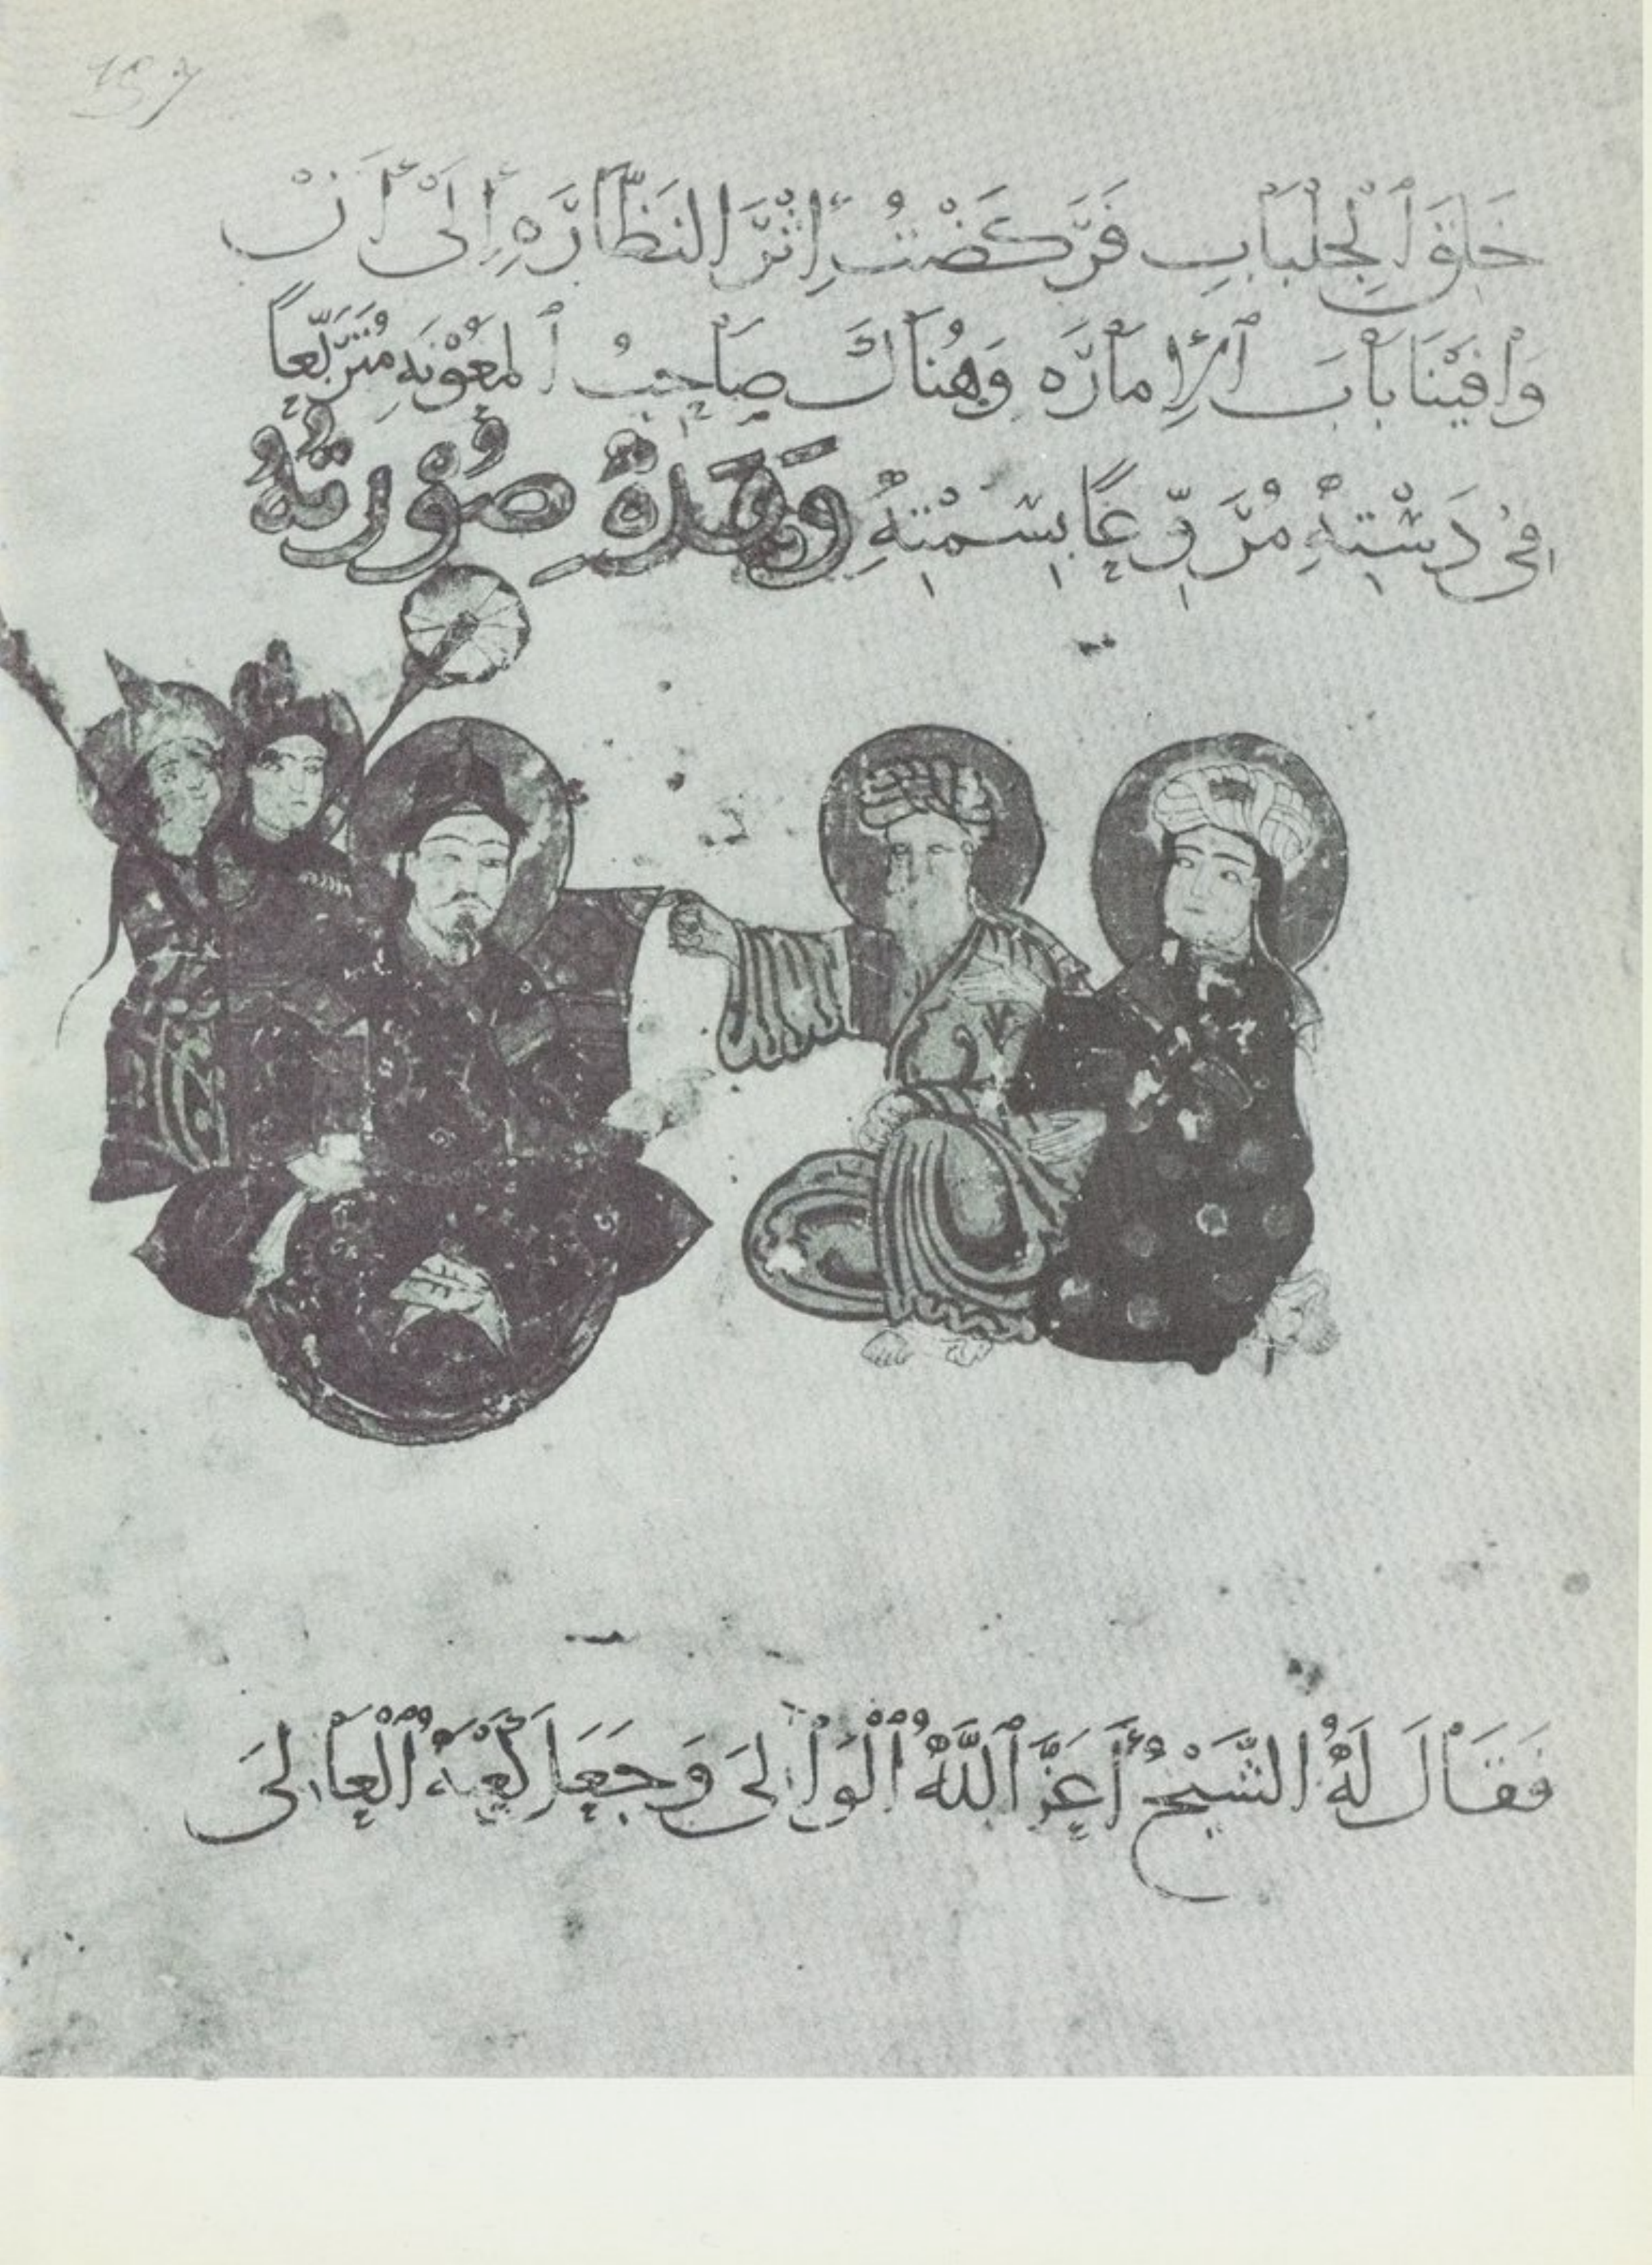 157
خَلَقَ ٱلْجِلْبَابِ فَرَكَضْتُ إِثْرَ النَظَّارَهِ إِلَىْ أَنْ
وَافَيْنَا بَابَ ٱلْإِمارَه وَهُنَاكَ صَاحِبُ ٱلمَعُوْنَهِ مُتَرَبِّعاً
فِىْ دَسْتِهْ مُرَوِّعًا بِسَمْتِهِ وَهَذِهْ صُوْرتُهُ
فَقَالَ لَهُ الشَّيْخُ أَعَزَّ ٱللَّهُ ٱلْوَالِىَ وَجَعَلَ كَعْبَهُ ٱلْعَالِىَ